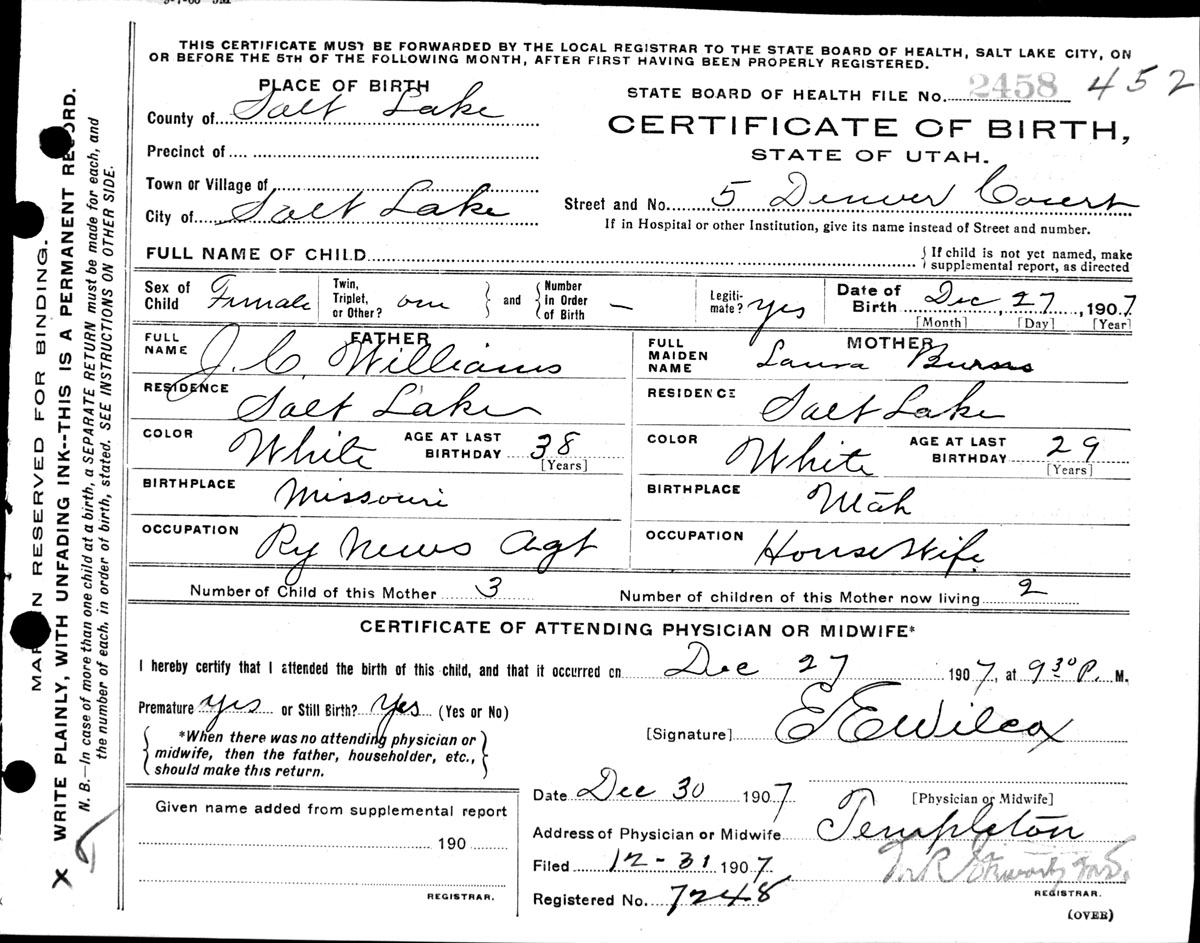 THIS CERTIFICATE MUST BE FORWARDED BY THE LOCAL REGISTRAR TO THE STATE BOARD OF HEALTH, SALT LAKE CITY, ON
OR BEFORE THE 5TH OF THE FOLLOWING MONTH, AFTER FIRST HAVING BEEN PROPERLY REGISTERED.
PLACE OF BIRTH
STATE BOARD OF HEALTH FILE No. 2458 452
County of Salt Lake
CERTIFICATE OF BIRTH,
STATE OF UTAH.
Precinct of
Town or Village of
City of Salt Lake
Street and No. 5 Denver Court
If in Hospital or other Institution, give its name instead of Street and number.
FULL NAME OF CHILD
If child is not yet named, make
supplemental report, as directed
Sex of Child Female
Twin, Triplet, or Other? one
and Number in Order of Birth —
Legiti-mate? yes
Date of Birth Dec 27, 1907
[Month] [Day] [Year]
FATHER
FULL NAME J. C. Williams
MOTHER
FULL MAIDEN NAME Laura Burns
RESIDENCE Salt Lake
RESIDENCE Salt Lake
COLOR White AGE AT LAST BIRTHDAY 38 [Years]
COLOR White AGE AT LAST BIRTHDAY 29 [Years]
BIRTHPLACE Missouri
BIRTHPLACE Utah
OCCUPATION Ry News Agt
OCCUPATION House Wife
Number of Child of this Mother 3
Number of children of this Mother now living 2
CERTIFICATE OF ATTENDING PHYSICIAN OR MIDWIFE*
I hereby certify that I attended the birth of this child, and that it occurred on Dec 27 1907, at 9 30 P. M.
Premature yes or Still Birth? Yes (Yes or No)
*When there was no attending physician or
midwife, then the father, householder, etc.,
should make this return.
[Signature] E E Wilcox
Given name added from supplemental report
190
REGISTRAR.
Date Dec 30 1907
[Physician or Midwife]
Address of Physician or Midwife Templeton
Filed 12-31 1907
REGISTRAR.
Registered No. 7248
(OVER)
RESERVED FOR BINDING.
WRITE PLAINLY, WITH UNFADING INK--THIS IS A PERMANENT RECORD.
N. B.—In case of more than one child at a birth, a SEPARATE RETURN must be made for each, and
the number of each, in order of birth, stated. SEE INSTRUCTIONS ON OTHER SIDE.
X